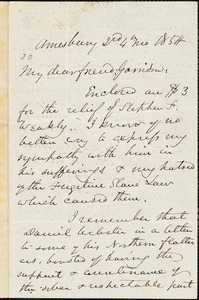 Amesbury 3rd 4 mo 1854
My dear friend Garrison:
Enclosed are $3
for the relief of Stephen F.
Weakly. I know of no
better way to express my
sympathy with him in
his sufferings & my hatred
of the Fugitive Slave Law
which caused them.
I remember that
Daniel Webster in a letter
to some of his Northern flatter
ers, boasted of having the
support & countenance of
the sober & respectable part